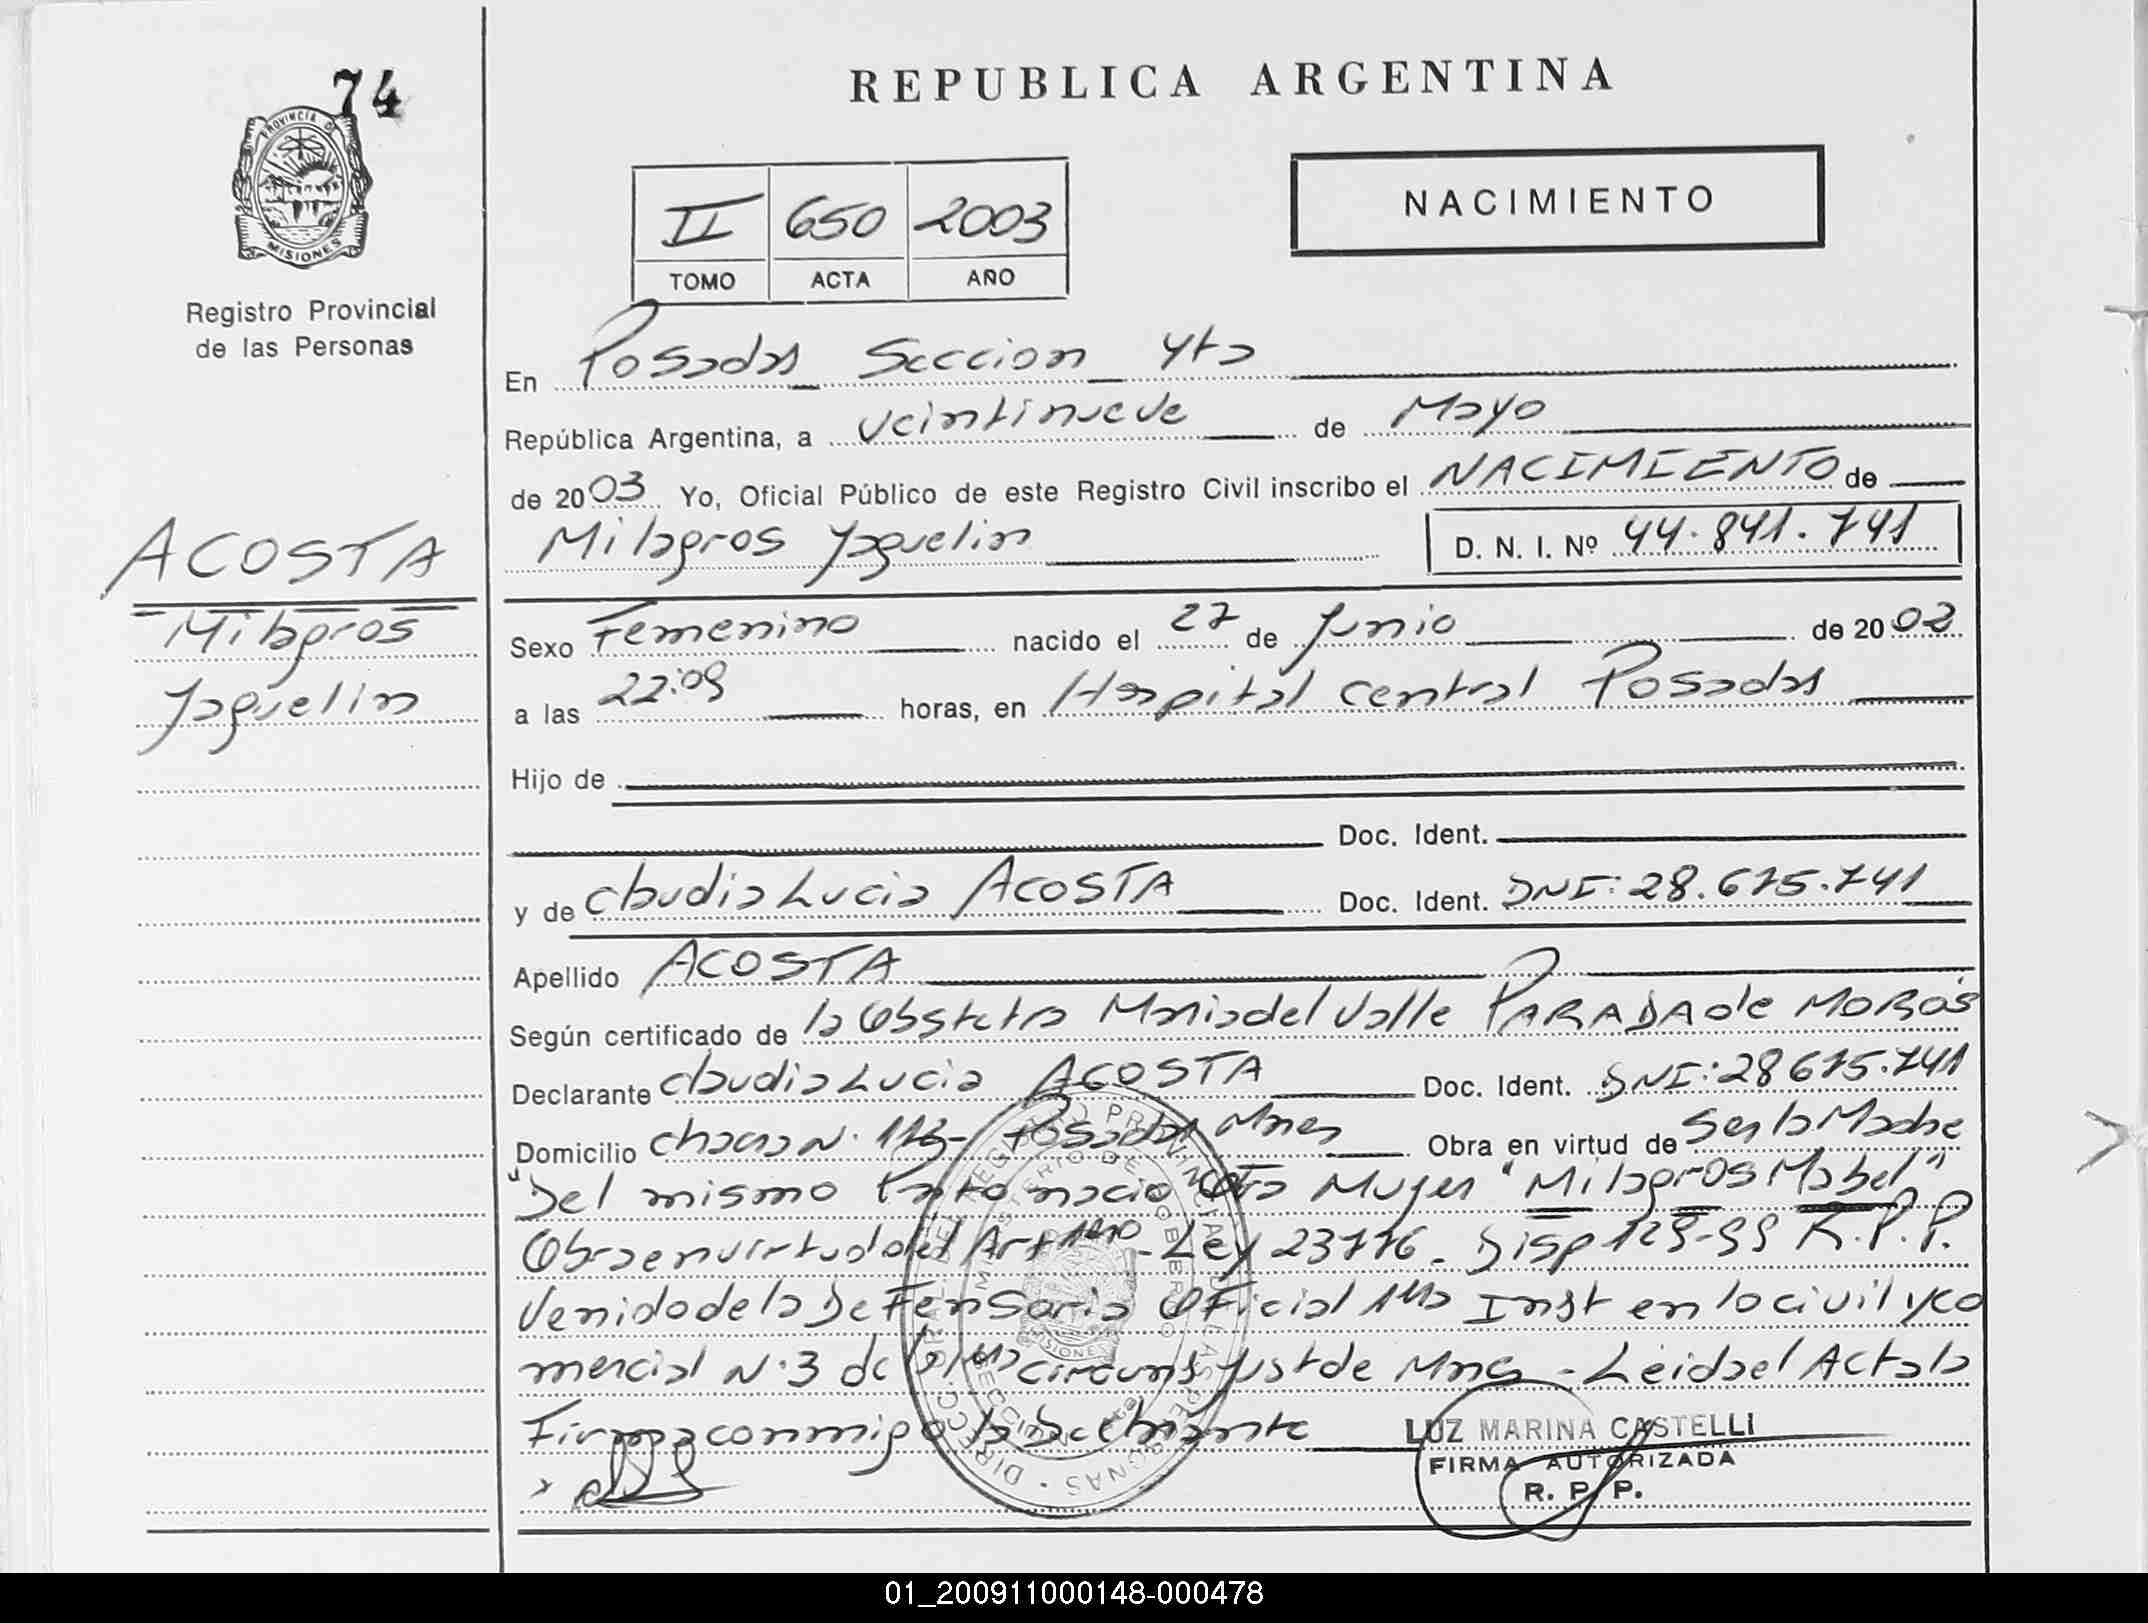 74
REPUBLICA ARGENTINA
PROVINCIA DE
MISIONES
II 650 2003
TOMO ACTA AÑO
NACIMIENTO
Registro Provincial
de las Personas
En Posadas Seccion 4ta
República Argentina, a veintinueve de Mayo
de 2003 Yo, Oficial Público de este Registro Civil inscribo el NACIMIENTO de
Milagros Yaquelin D. N. I. Nº 44.841.741
ACOSTA
Milagros
Yaquelin
Sexo Femenino nacido el 27 de Junio de 2002
a las 22:09 horas, en Hospital Central Posadas
Hijo de
Doc. Ident.
y de Claudia Lucia ACOSTA Doc. Ident. DNI: 28.675.741
Apellido ACOSTA
Según certificado de la Obstetra Maria del Valle PARADA de
Declarante Claudia Lucia ACOSTA Doc. Ident. DNI: 28675.741
Domicilio chacra N. 113- Posadas Mnes Obra en virtud de Ser la Madre
"Del mismo Parto nacio Otra Mujer "Milagros Mabel"
Obra en virtud del Art 1ro - Ley 23776 - Disp 129-99 R.P.P.
Venido de la Defensoria Oficial 1ra Inst en lo civil y co
mercial N.3 de la 1ra circuns Just de Mnes - Leida el Acta la
Firma conmigo la Declarante
LUZ MARINA CASTELLI
FIRMA AUTORIZADA
R. P. P.
01_200911000148-000478